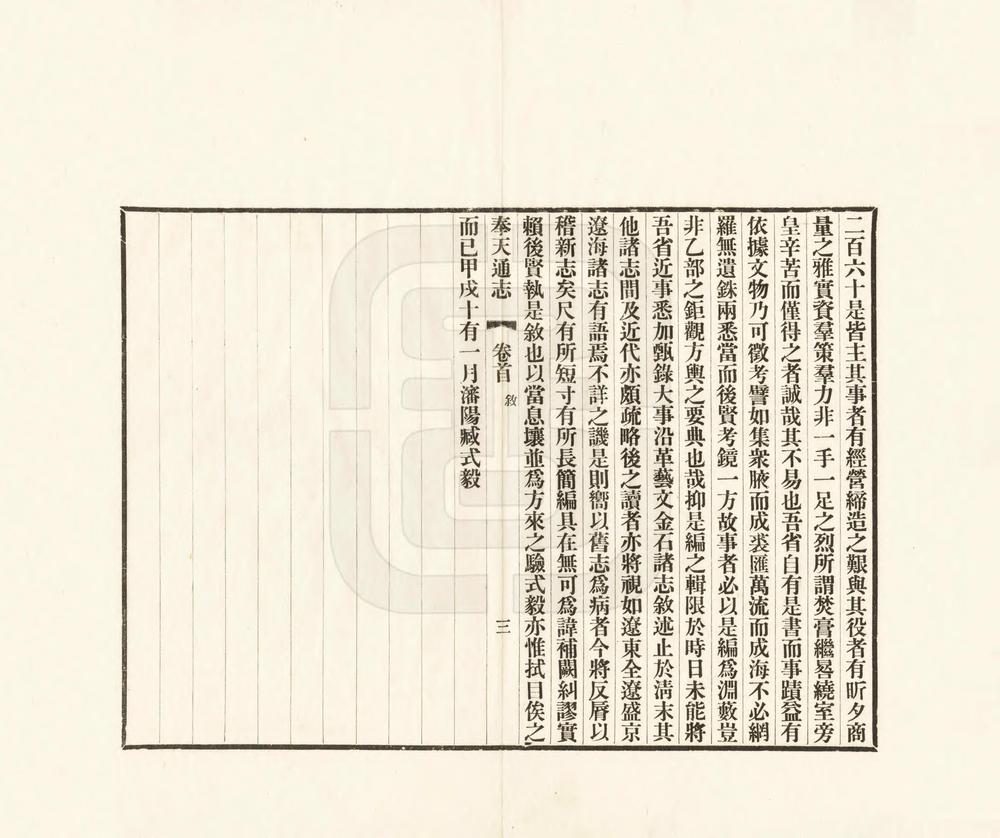 二百六十是皆主其事者有經營締造之艱與其役者有昕夕商
量之雅實資羣策羣力非一手一足之烈所謂焚膏繼晷繞室旁
皇辛苦而僅得之者誠哉其不易也吾省自有是書而事蹟益有
依據文物乃可徵考譬如集衆腋而成裘匯萬流而成海不必網
羅無遺銖兩悉當而後賢考鏡一方故事者必以是編爲淵藪豈
非乙部之鉅觀方輿之要典也哉抑是編之輯限於時日未能將
吾省近事悉加甄錄大事沿革藝文金石諸志敘述止於清末其
他諸志間及近代亦頗疏略後之讀者亦將視如遼東全遼盛京
遼海諸志有語焉不詳之譏是則嚮以舊志爲病者今將反脣以
稽新志矣尺有所短寸有所長簡編具在無可爲諱補闕糾謬實
賴後賢執是敘也以當息壤並爲方來之驗式毅亦惟拭目俟之
奉天通志 卷首 敘 三
而已甲戌十有一月瀋陽臧式毅